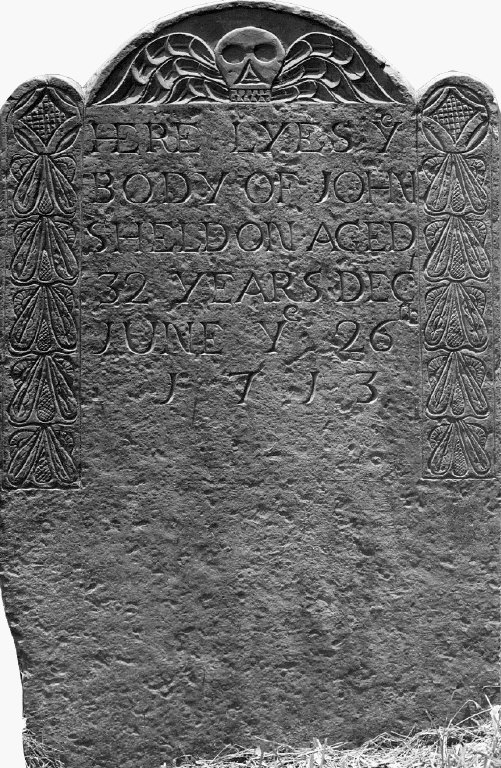 HERE LYES Yᵉ
BODY OF JOHN
SHELDON AGED
32 YEARS DECᵈ
JUNE Yᵉ 26ᵗʰ
1713